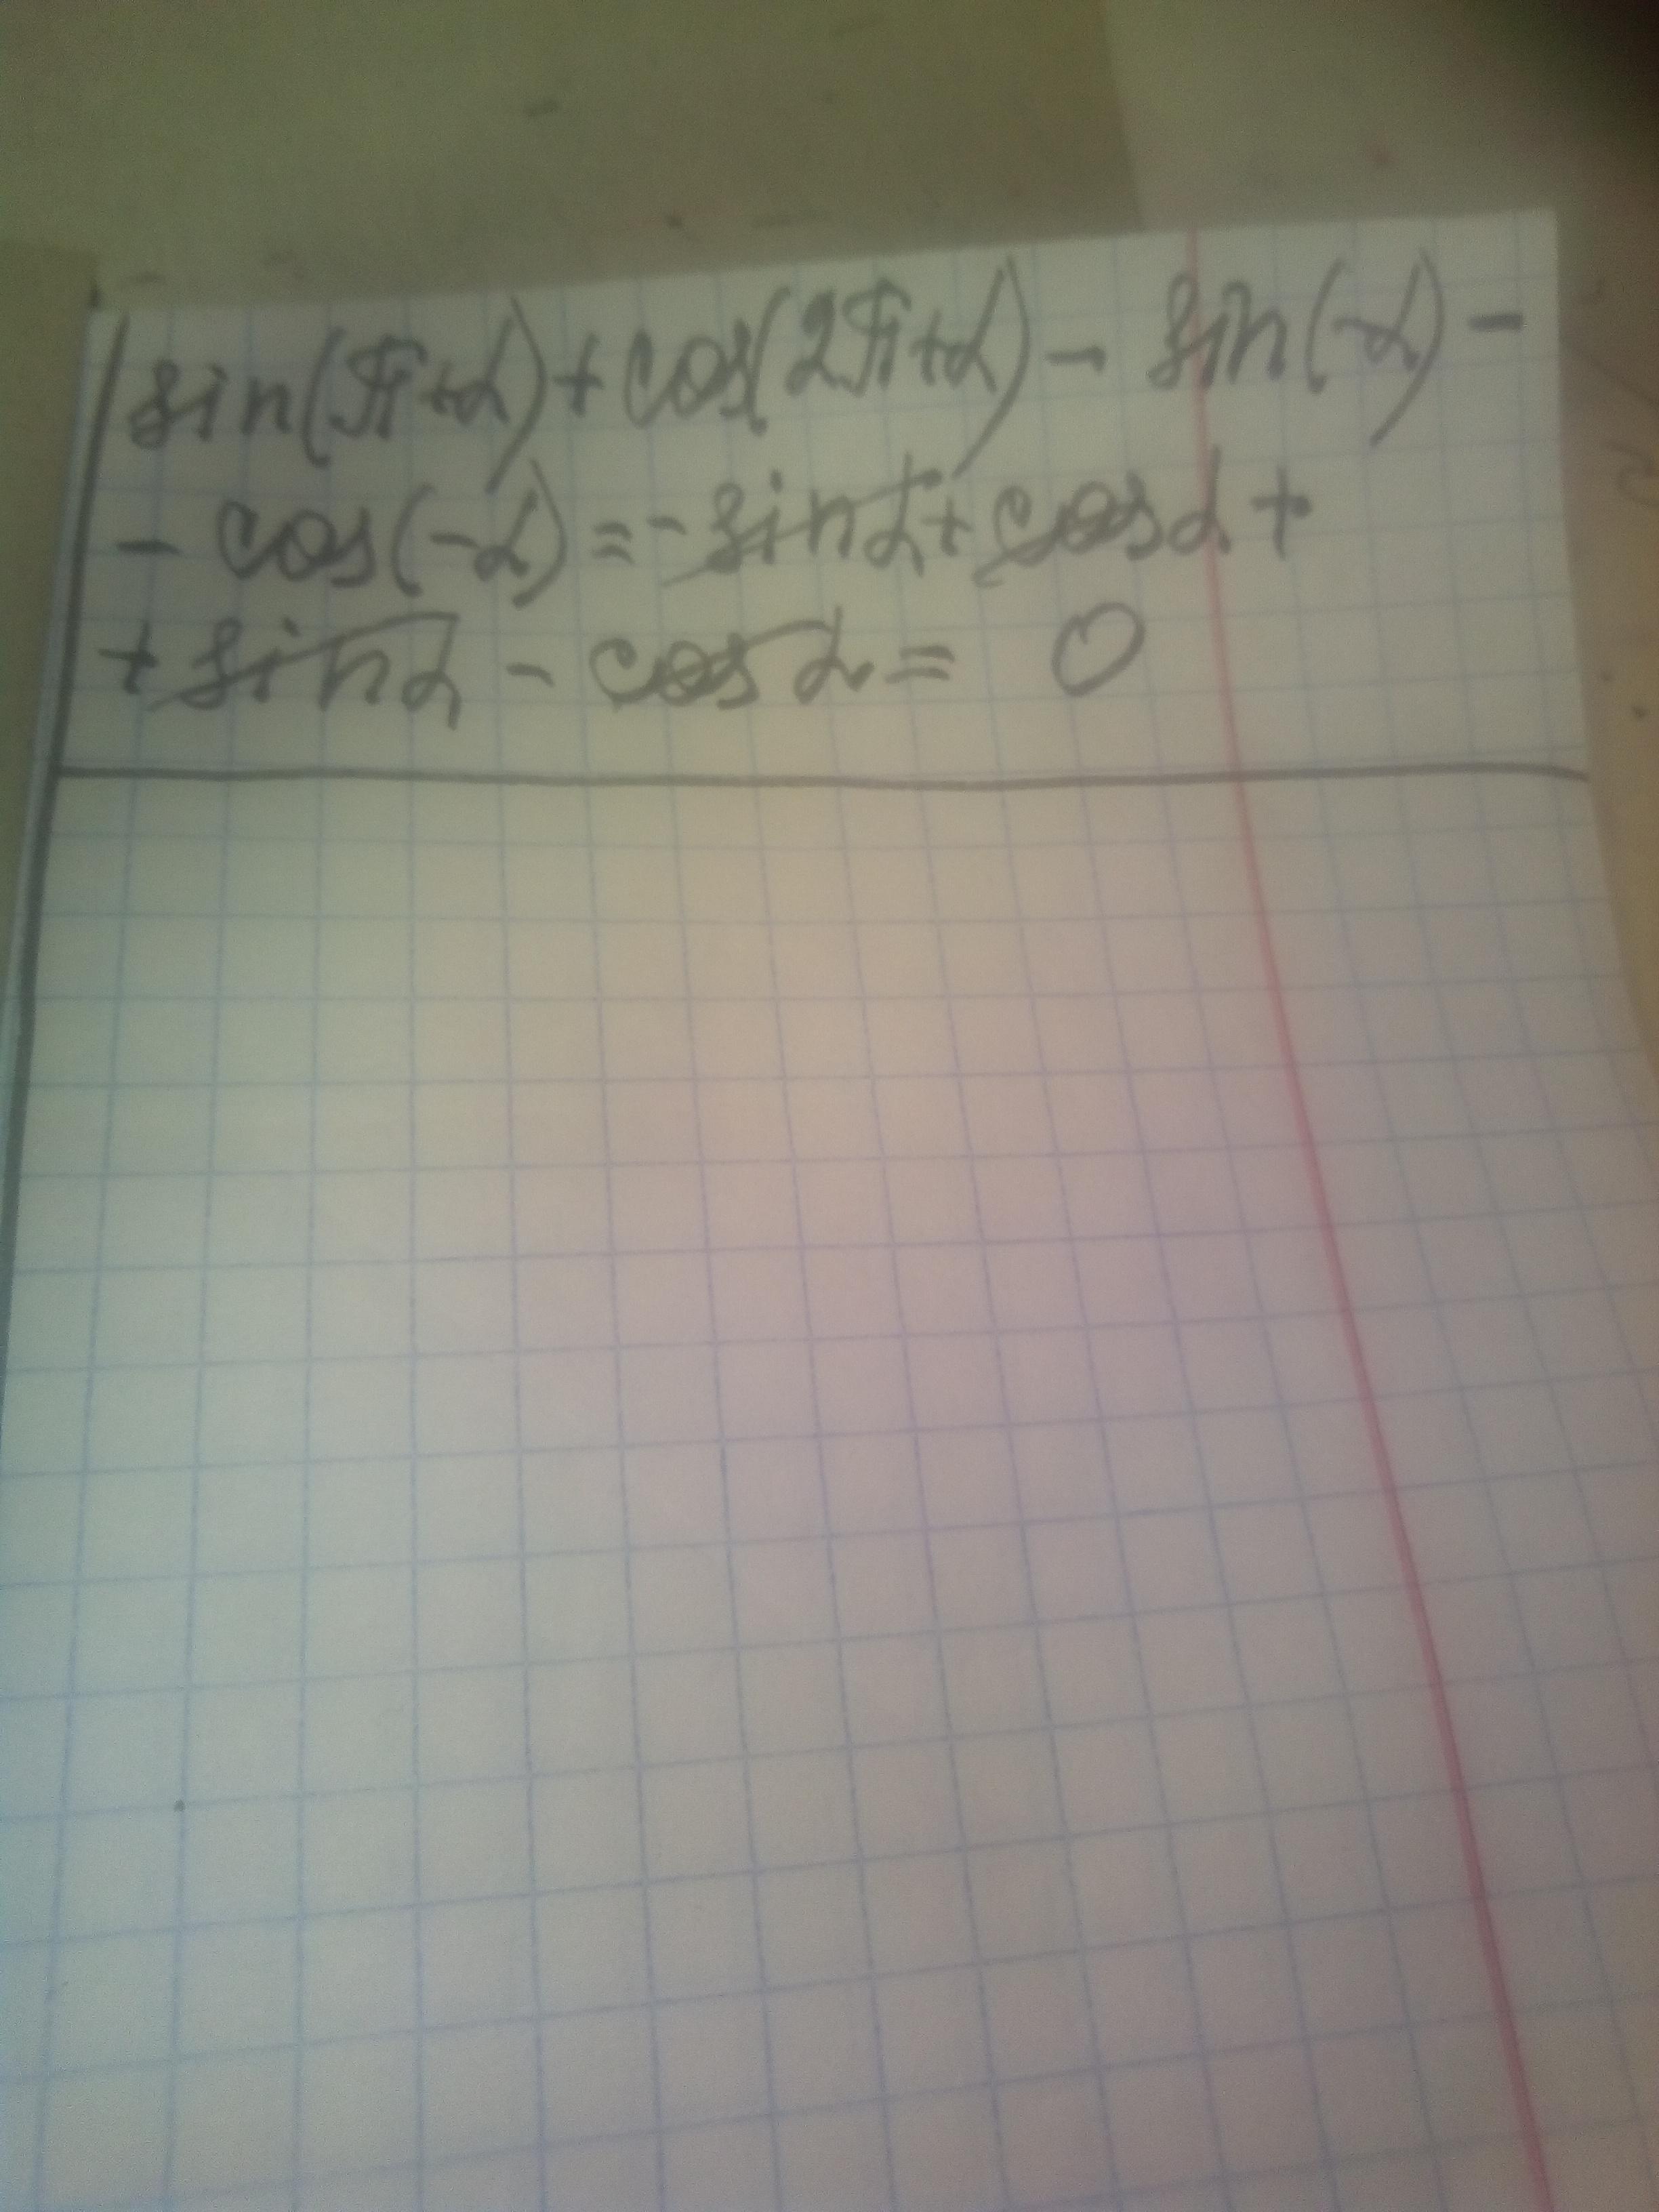 sin(π+α)+cos(2π+α)- sin(-α)-
- cos(-α)=-sinα+cosα+
+sinα-cosα= 0